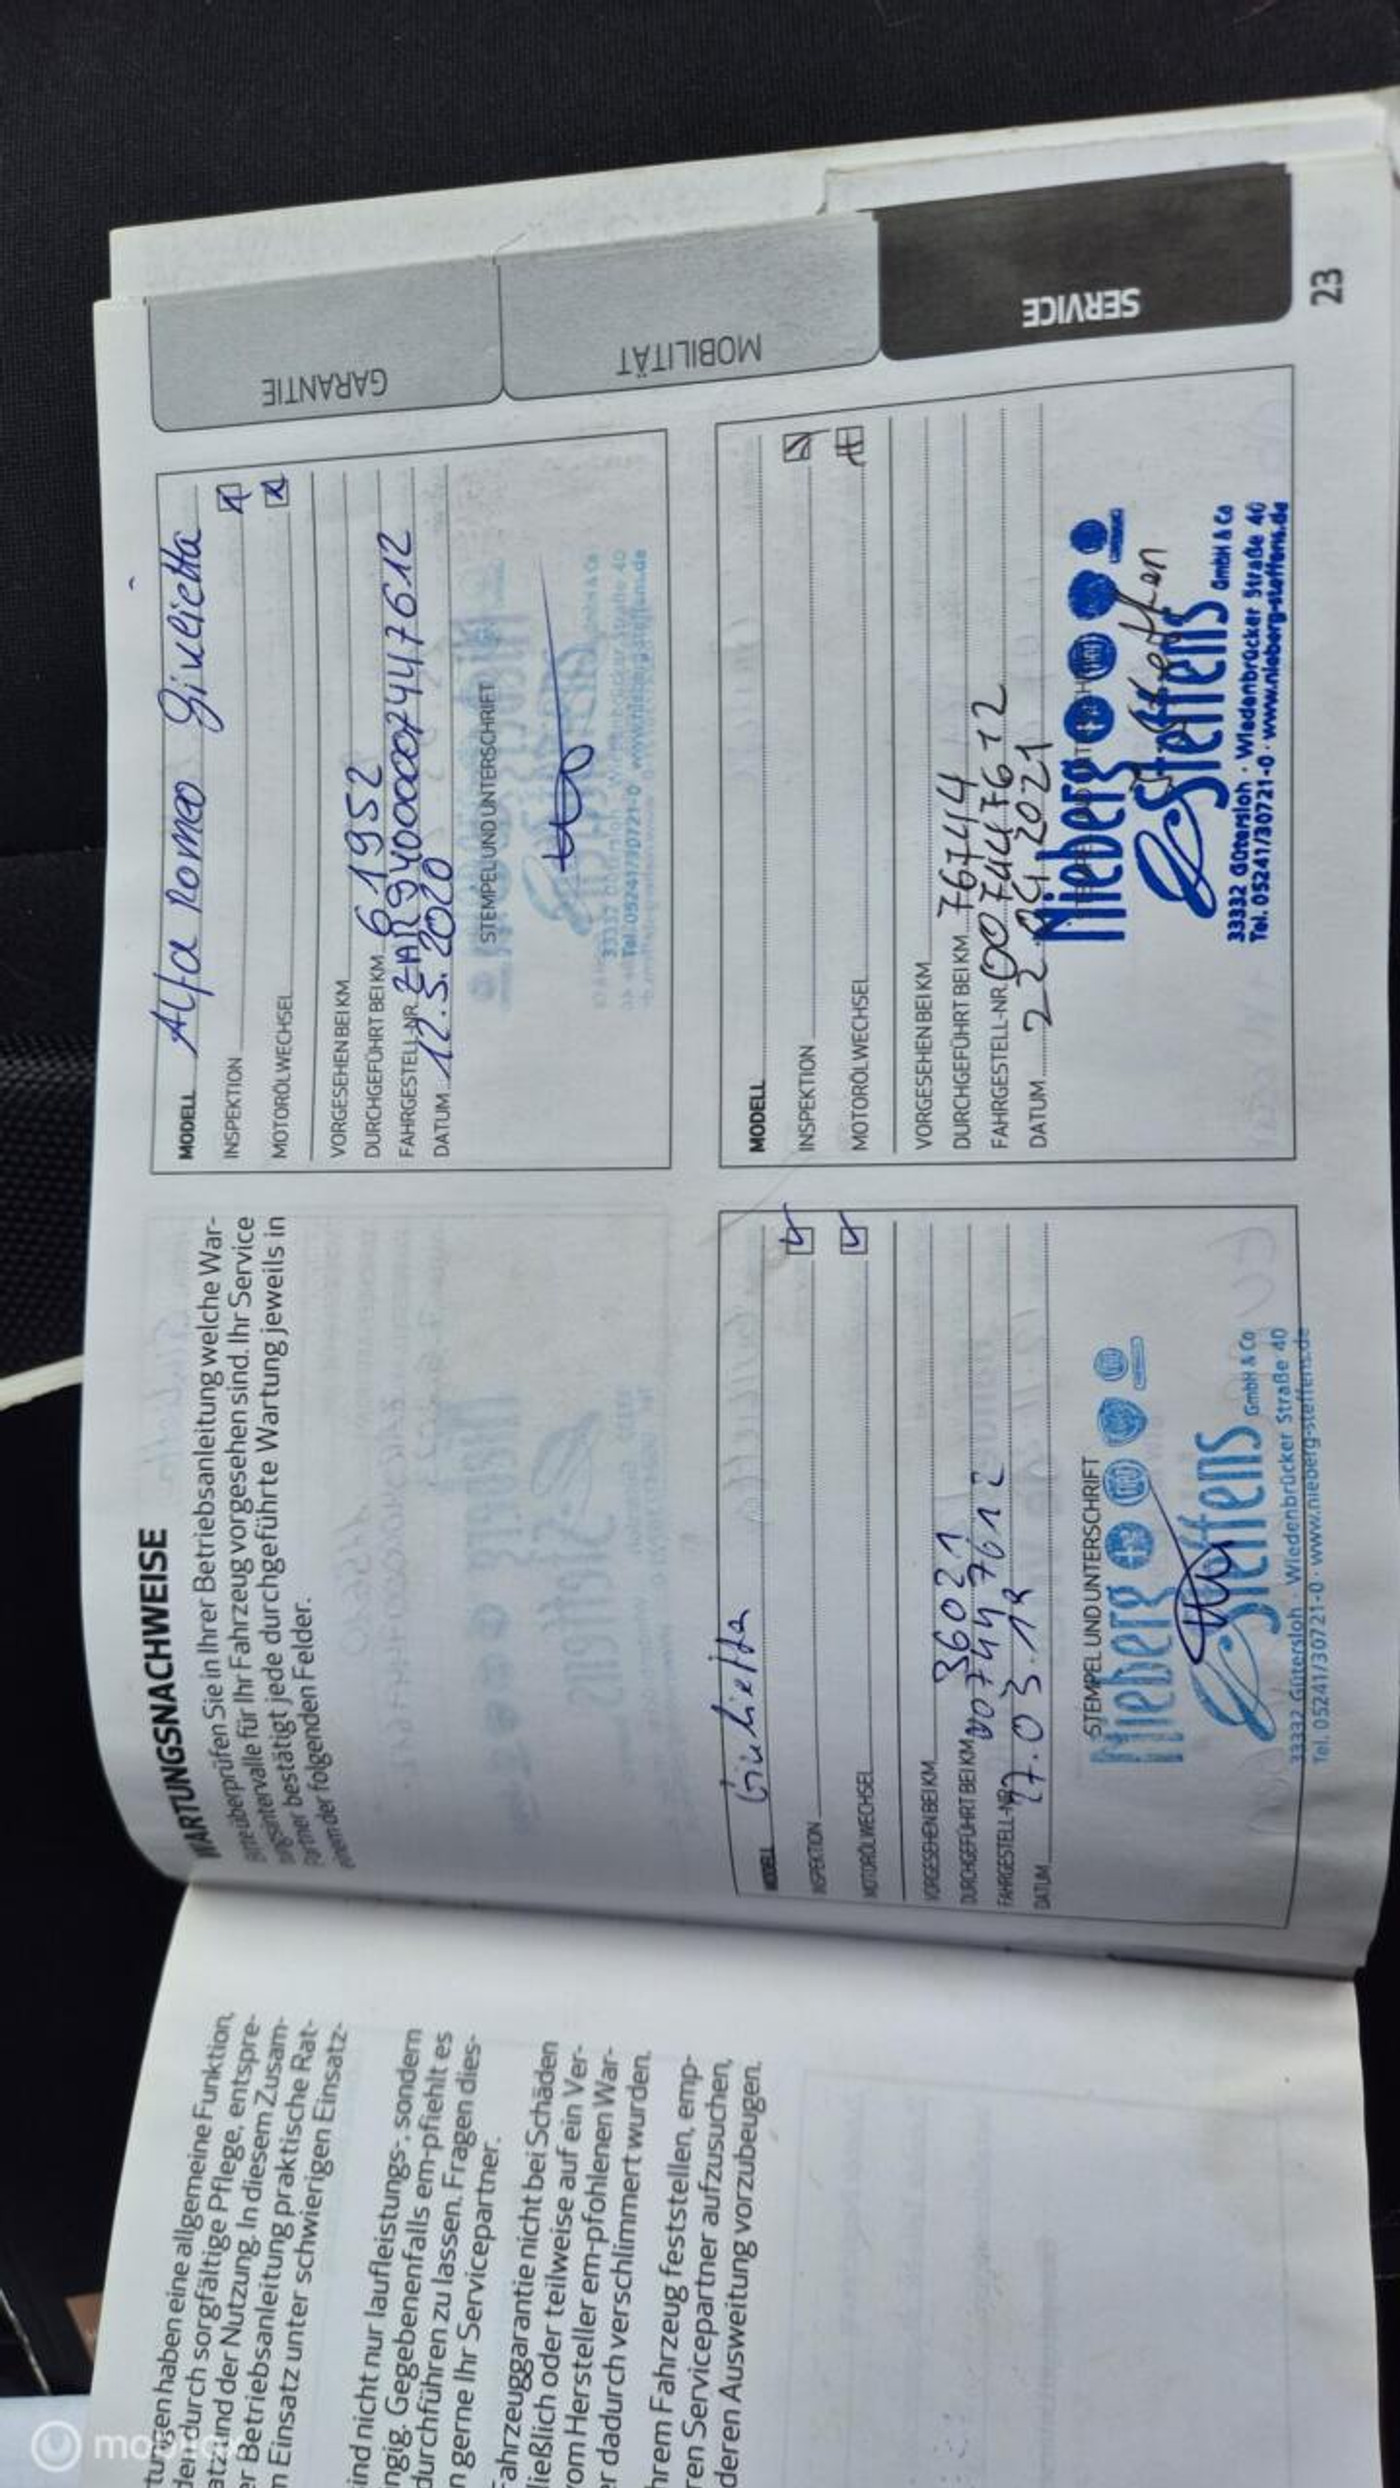 tungen haben eine allgemeine Funktion,
den durch sorgfältige Pflege, entspre-
atz und der Nutzung. In diesem Zusam-
er Betriebsanleitung praktische Rat-
n Einsatz unter schwierigen Einsatz-
ind nicht nur laufleistungs-, sondern
ngig. Gegebenenfalls em-pfiehlt es
durchführen zu lassen. Fragen dies-
n gerne Ihr Servicepartner.
Fahrzeuggarantie nicht bei Schäden
ließlich oder teilweise auf ein Ver-
vom Hersteller em-pfohlenen War-
r dadurch verschlimmert wurden.
hrem Fahrzeug feststellen, emp-
ren Servicepartner aufzusuchen,
deren Ausweitung vorzubeugen.
WARTUNGSNACHWEISE
Bitte überprüfen Sie in Ihrer Betriebsanleitung welche War-
tungsintervalle für Ihr Fahrzeug vorgesehen sind. Ihr Service
Partner bestätigt jede durchgeführte Wartung jeweils in
einem der folgenden Felder.
MODELL Alfa Romeo Giulietta
INSPEKTION
MOTORÖLWECHSEL
VORGESEHEN BEI KM
DURCHGEFÜHRT BEI KM 61952
FAHRGESTELL-NR. ZAR94000007447612
DATUM 12.5.2020
STEMPEL UND UNTERSCHRIFT
Tel. 05241/30721-0
MODELL Giulietta
INSPEKTION
MOTORÖLWECHSEL
VORGESEHEN BEI KM
DURCHGEFÜHRT BEI KM 36021
FAHRGESTELL-NR. 007447612
DATUM 27.03.19
STEMPEL UND UNTERSCHRIFT
Nieberg
Steffens GmbH & Co
33332 Gütersloh · Wiedenbrücker Straße 40
Tel. 05241/30721-0 · www.nieberg-steffens.de
MODELL
INSPEKTION
MOTORÖLWECHSEL
VORGESEHEN BEI KM
DURCHGEFÜHRT BEI KM 76744
FAHRGESTELL-NR. 007447612
DATUM 22.04.2021
Nieberg
Steffens GmbH & Co
33332 Gütersloh · Wiedenbrücker Straße 40
Tel. 05241/30721-0 · www.nieberg-steffens.de
GARANTIE
MOBILITÄT
SERVICE
23